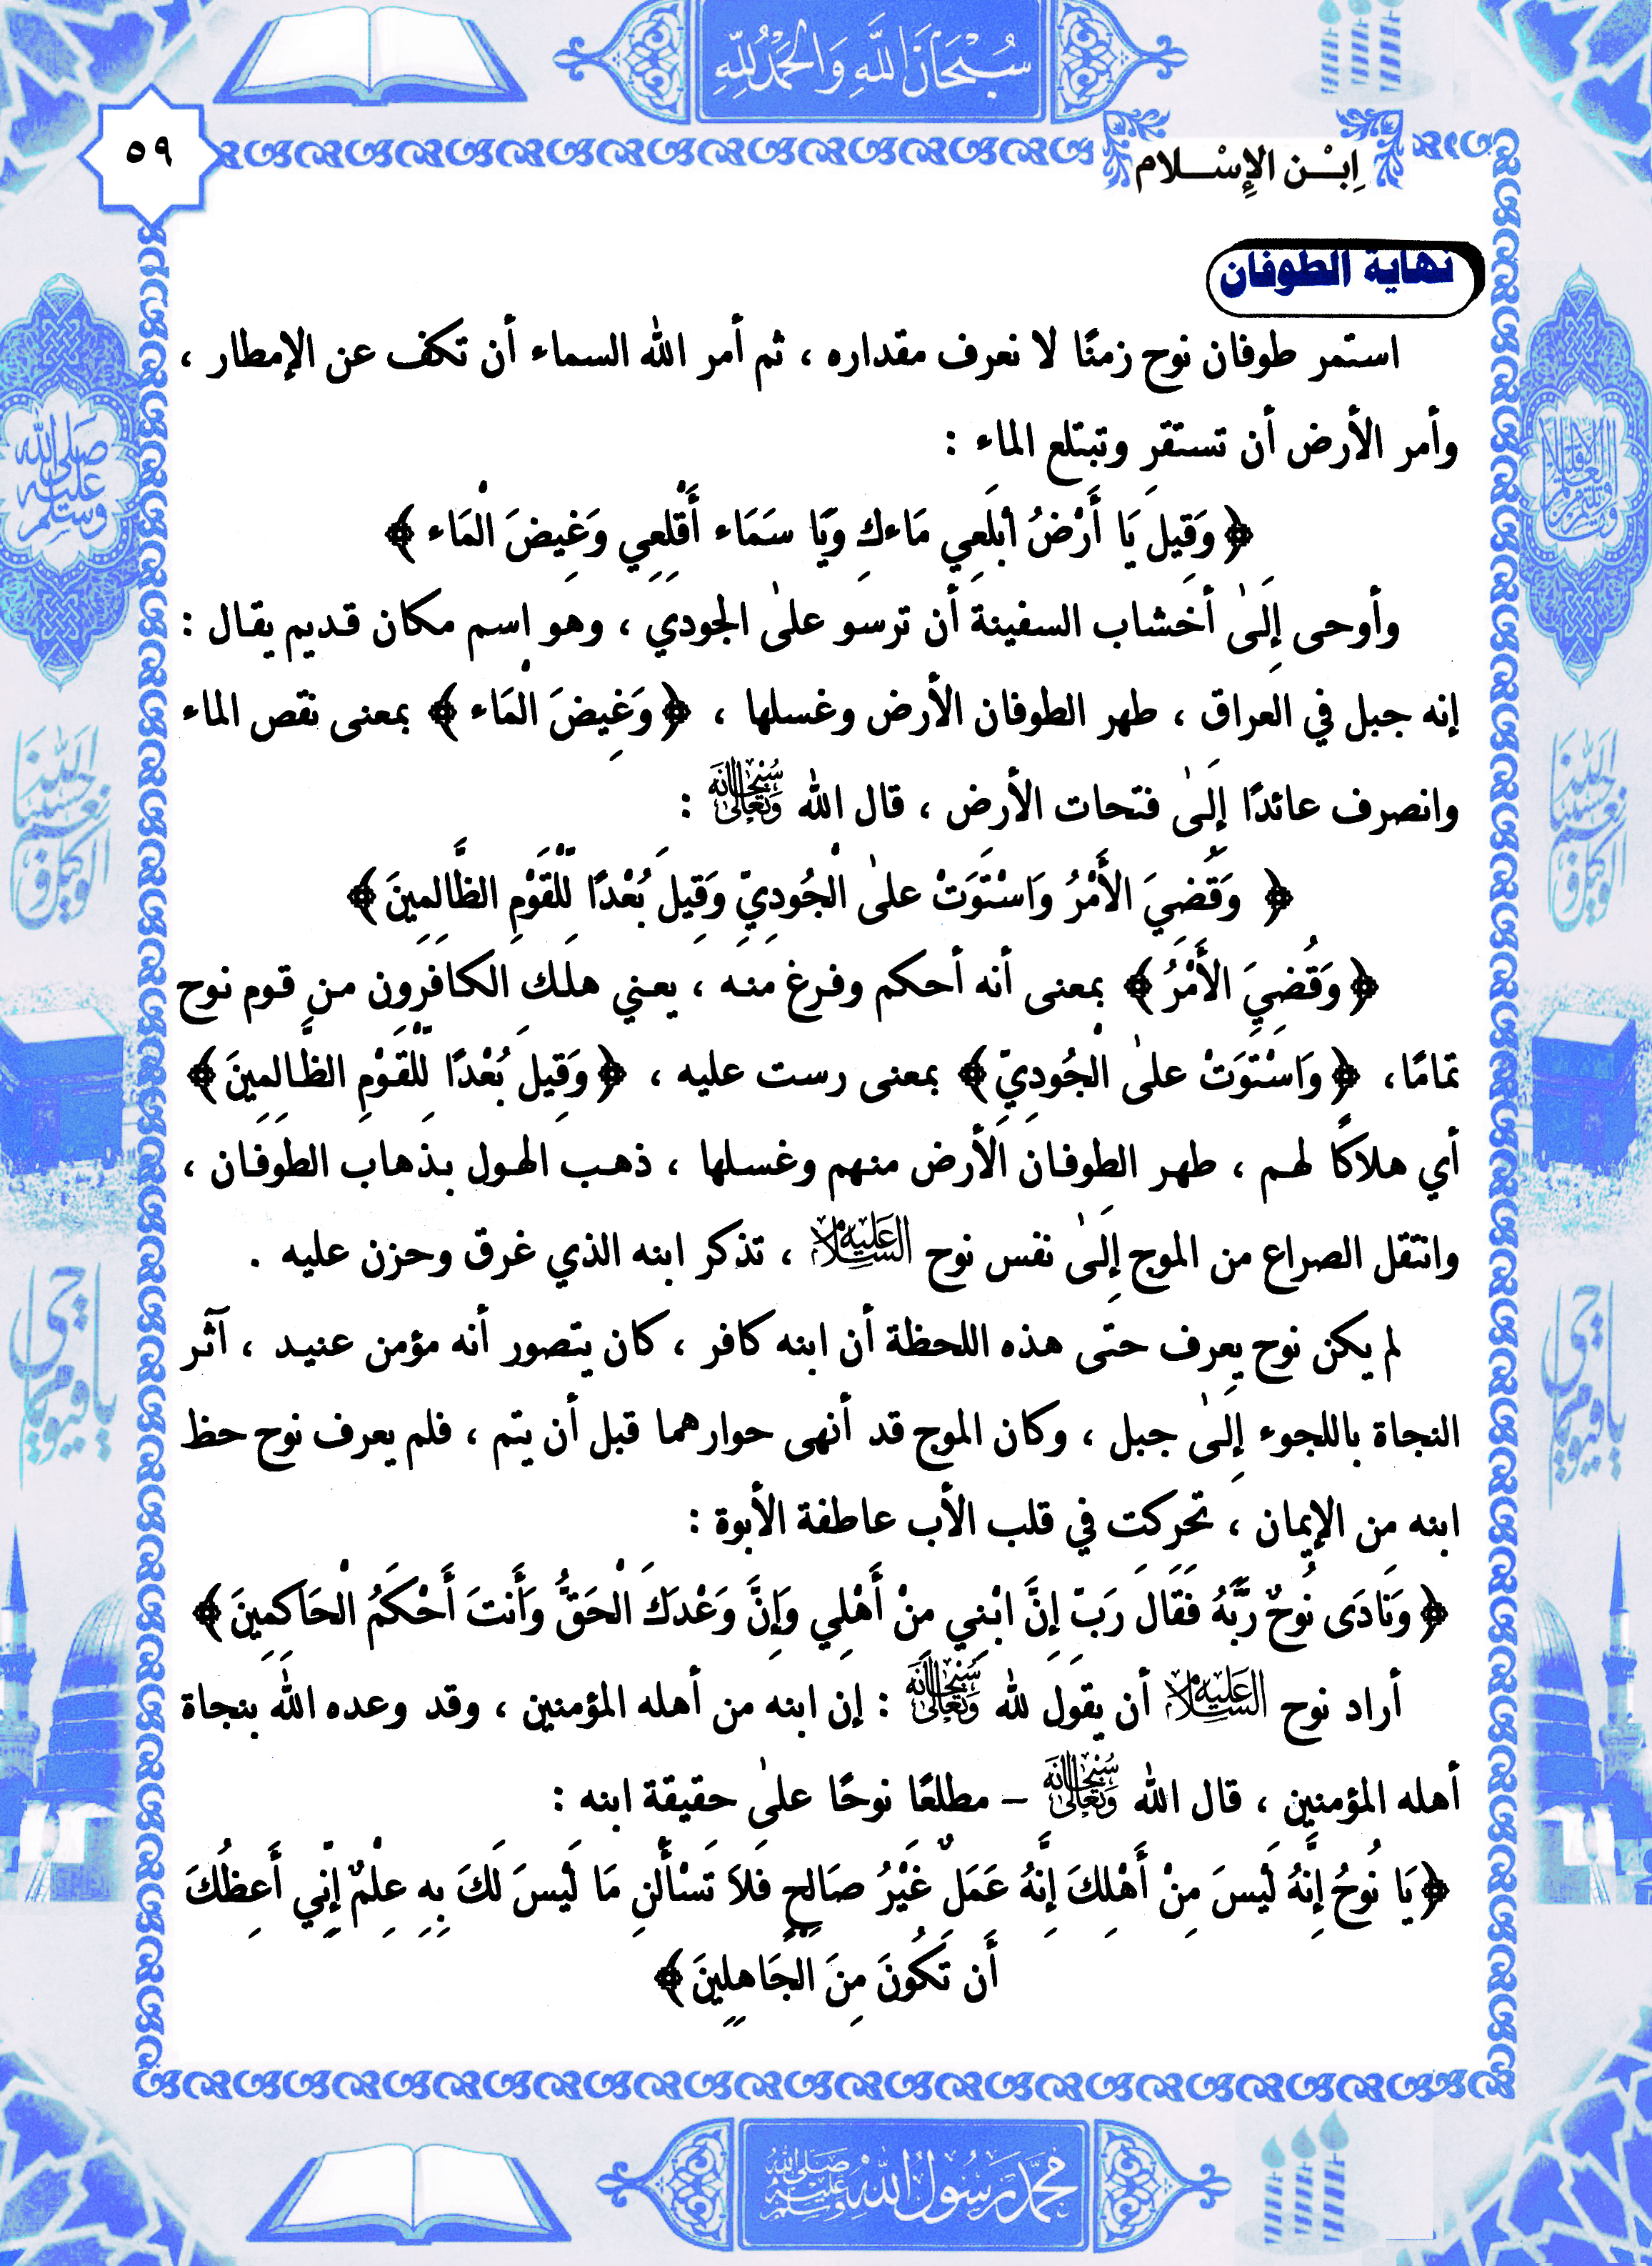 سُبْحَانَ اللَّهِ وَالْحَمْدُ لِلَّهِ
٥٩
اِبْـن الإِسْـلام
نهاية الطوفان
استمر طوفان نوح زمنًا لا نعرف مقداره ، ثم أمر الله السماء أن تكف عن الإمطار ،
وأمر الأرض أن تستقر وتبتلع الماء :
﴿ وَقِيلَ يَا أَرْضُ ابْلَعِي مَاءكِ وَيَا سَمَاء أَقْلِعِي وَغِيضَ الْمَاء ﴾
وأوحى إِلَىٰ أخشاب السفينة أن ترسو علىٰ الجودي ، وهو اسم مكان قديم يقال :
إنه جبل في العراق ، طهر الطوفان الأرض وغسلها ، ﴿ وَغِيضَ الْمَاء ﴾ بمعنى نقص الماء
وانصرف عائدًا إِلَىٰ فتحات الأرض ، قال الله سُبْحَانَهُ وَتَعَالَىٰ :
﴿ وَقُضِيَ الأَمْرُ وَاسْتَوَتْ علىٰ الْجُودِيِّ وَقِيلَ بُعْدًا لِّلْقَوْمِ الظَّالِمِينَ ﴾
﴿ وَقُضِيَ الأَمْرُ ﴾ بمعنى أنه أحكم وفرغ منه ، يعني هلك الكافرون من قوم نوح
تمامًا، ﴿ وَاسْتَوَتْ علىٰ الْجُودِيِّ ﴾ بمعنى رست عليه ، ﴿ وَقِيلَ بُعْدًا لِّلْقَوْمِ الظَّالِمِينَ ﴾
أي هلاكًا لهم ، طهر الطوفان الأرض منهم وغسلها ، ذهب الهول بذهاب الطوفان ،
وانتقل الصراع من الموج إِلَىٰ نفس نوح عَلَيْهِ السَّلَام ، تذكر ابنه الذي غرق وحزن عليه .
لم يكن نوح يعرف حتى هذه اللحظة أن ابنه كافر ، كان يتصور أنه مؤمن عنيد ، آثر
النجاة باللجوء إِلَىٰ جبل ، وكان الموج قد أنهى حوارهما قبل أن يتم ، فلم يعرف نوح حظ
ابنه من الإيمان ، تحركت في قلب الأب عاطفة الأبوة :
﴿ وَنَادَى نُوحٌ رَّبَّهُ فَقَالَ رَبِّ إِنَّ ابْنِي مِنْ أَهْلِي وَإِنَّ وَعْدَكَ الْحَقُّ وَأَنتَ أَحْكَمُ الْحَاكِمِينَ ﴾
أراد نوح عَلَيْهِ السَّلَام أن يقول لله سُبْحَانَهُ وَتَعَالَىٰ : إن ابنه من أهله المؤمنين ، وقد وعده الله بنجاة
أهله المؤمنين ، قال الله سُبْحَانَهُ وَتَعَالَىٰ – مطلعًا نوحًا علىٰ حقيقة ابنه :
﴿ يَا نُوحُ إِنَّهُ لَيْسَ مِنْ أَهْلِكَ إِنَّهُ عَمَلٌ غَيْرُ صَالِحٍ فَلاَ تَسْأَلْنِ مَا لَيْسَ لَكَ بِهِ عِلْمٌ إِنِّي أَعِظُكَ
أَن تَكُونَ مِنَ الْجَاهِلِينَ ﴾
صلى الله عليه وسلم
حسبنا الله ونعم الوكيل
حسبنا الله ونعم الوكيل
يا حي يا قيوم
يا حي يا قيوم
مُحَمَّد رَسُولُ اللَّه صلى الله عليه وسلم